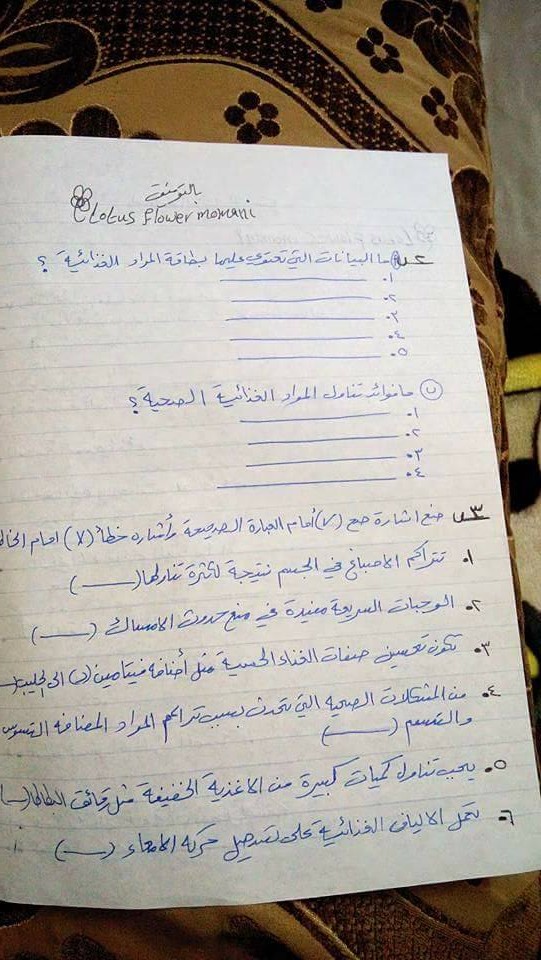 بالتوفيق
Lotus flower momani
س٢ أ) ما البيانات التي تحتوي عليها بطاقة المواد الغذائية ؟
١.
٢.
٣.
٤.
٥.
ب) ما فوائد تناول المواد الغذائية الصحية ؟
١.
٢.
٣.
٤.
س٣ ضع اشارة صح (√) أمام العبارة الصحيحة وأشاره خطأ (X) امام
١. تتراكم الاصباغ في الجسم نتيجة لكثرة تناولها ( )
٢. الوجبات السريعة مفيدة في منع حدوث الامساك ( )
٣. يكون تحسين صفات الغذاء الحسية مثل أضافه فيتامين (د) الى الحليب (
٤. من المشكلات الصحيه التي تحدث بسبب تراكم المواد المضافه التسوس
والتسمم ( )
٥. يجب تناول كميات كبيرة من الاغذية الخفيفة مثل رقائق البطاطا ( )
٦. تعمل الالياف الغذائية على تسهيل حركه الامعاء ( )